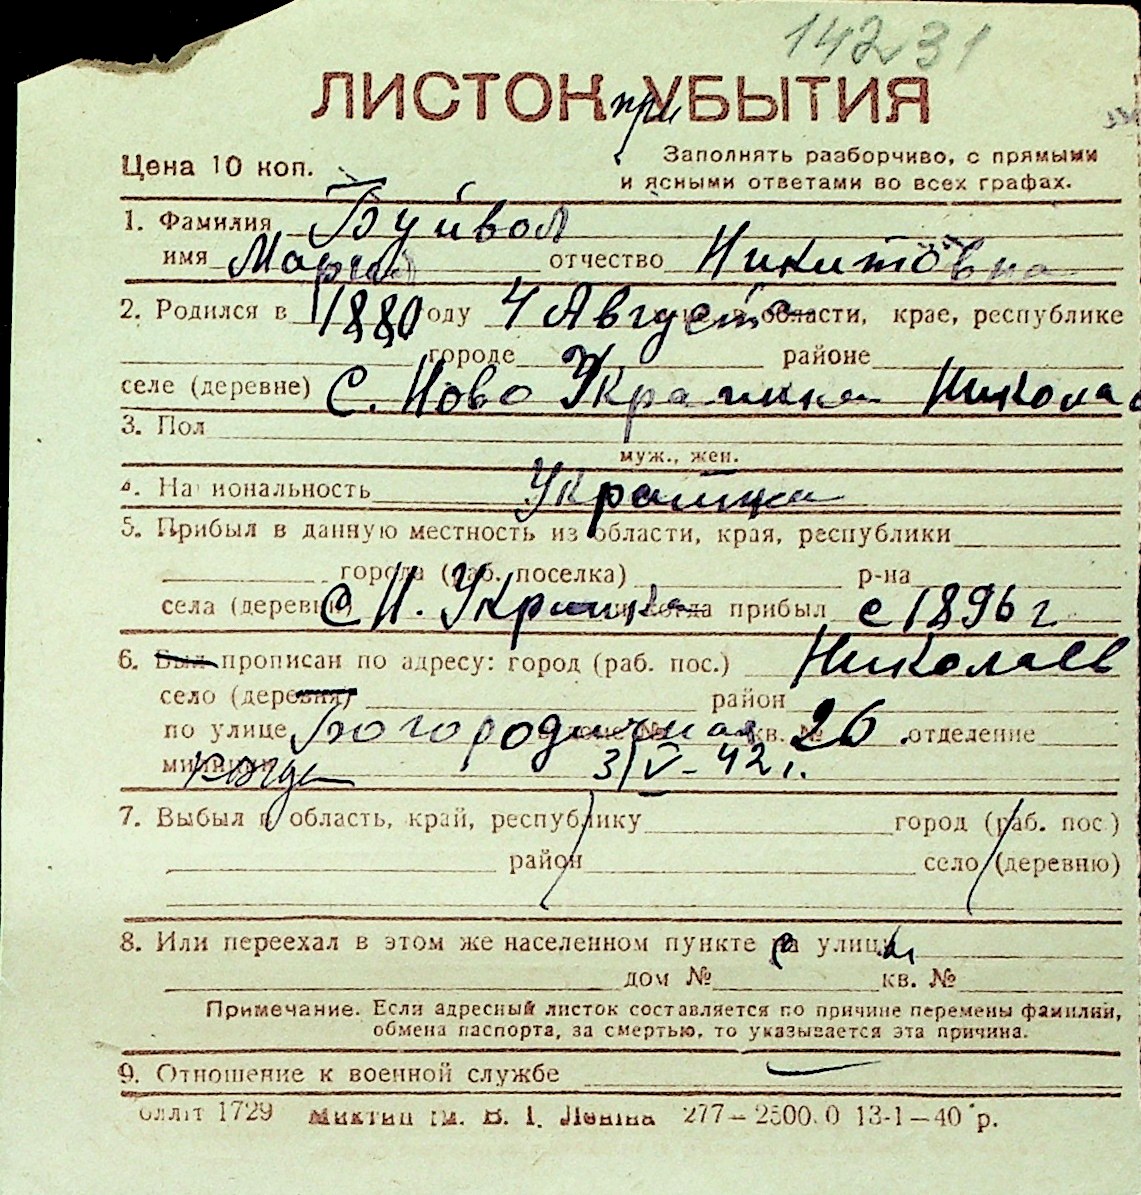 14231
ЛИСТОК при УБЫТИЯ
Цена 10 коп.
Заполнять разборчиво, с прямыми
и ясными ответами во всех графах.
1. Фамилия Буйвол
имя Мария отчество Никитовна
2. Родился в 1880 году 4 Август области, крае, республике
городе районе
селе (деревне) с. Ново Украинка Никола
3. Пол
муж., жен.
4. Национальность Украинка
5. Прибыл в данную местность из области, края, республики
города (раб. поселка) р-на
села (деревни) С Н. Украинка когда прибыл с 1896 г
6. Был прописан по адресу: город (раб. пос.) Николаев
село (деревня) район
по улице Богородичная кв. № 26 отделение
милиции когда 3/V-42 г.
7. Выбыл в область, край, республику город (раб. пос.)
район село (деревню)
8. Или переехал в этом же населенном пункте на улицы
дом № кв. №
Примечание. Если адресный листок составляется по причине перемены фамилии,
обмена паспорта, за смертью, то указывается эта причина.
9. Отношение к военной службе —
Облліт 1729 Миктип ім. В. І. Леніна 277—2500.0 13-1—40 р.